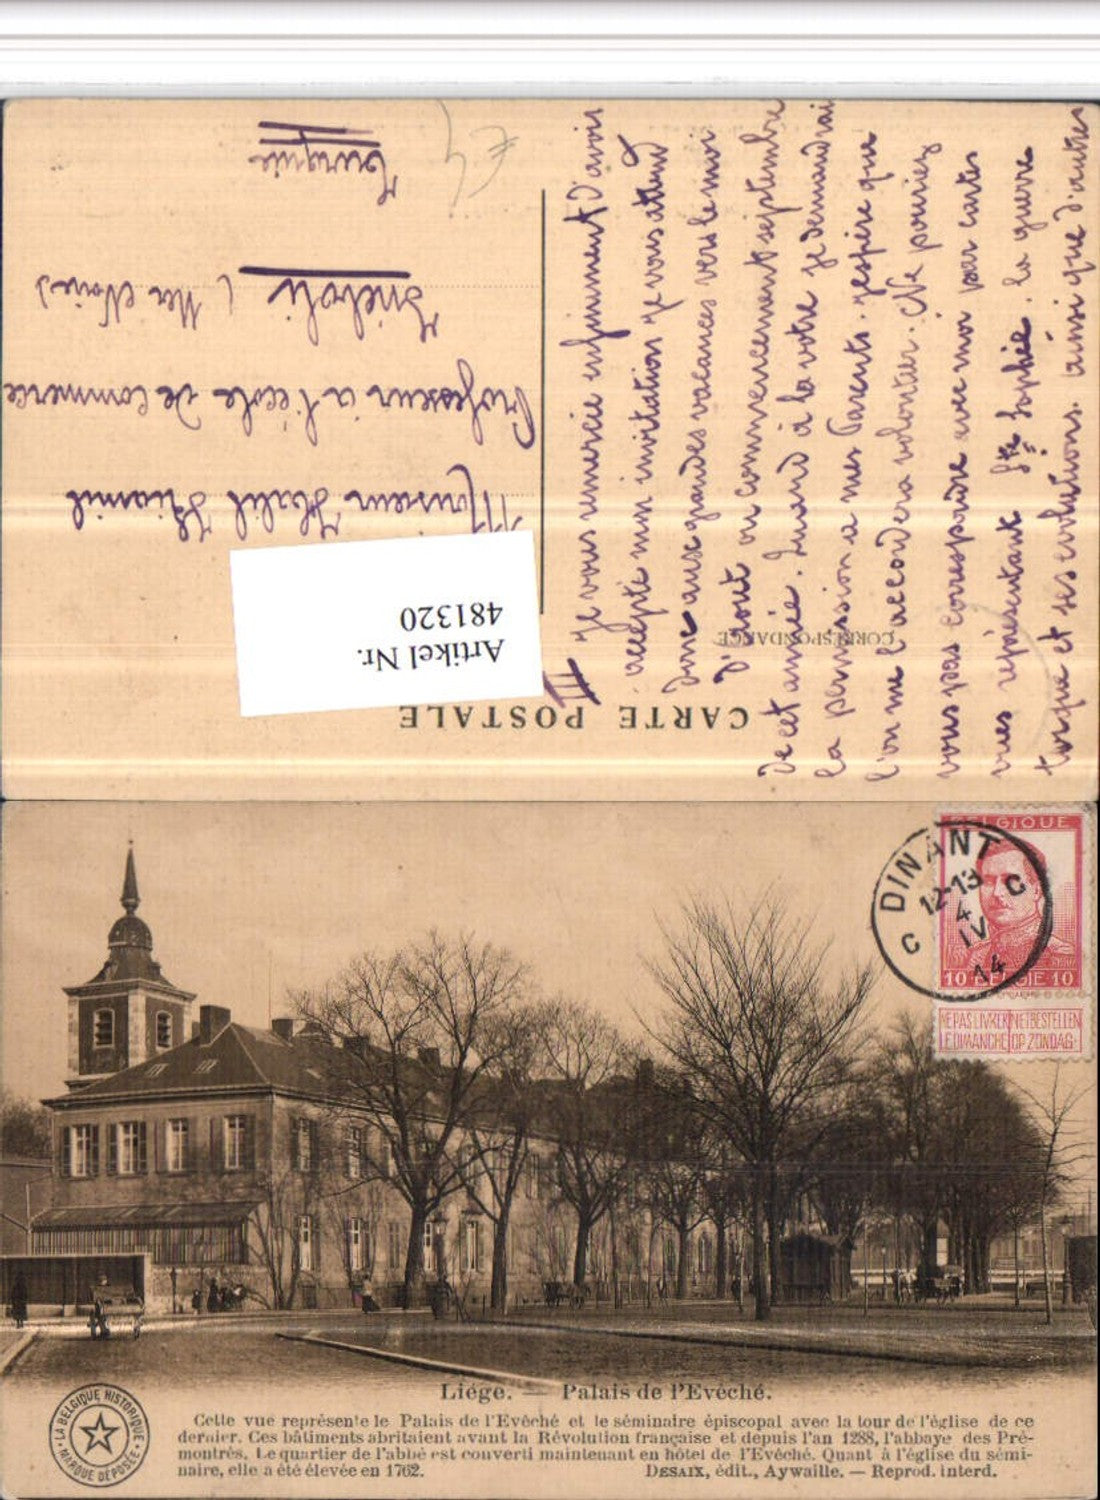 CARTE POSTALE
CORRESPONDANCE
Artikel Nr.
481320
Monsieur Halil Kiamil
Professeur à l'école de Commerce
Inéboli
(Mer Noire)
Turquie
III
Je vous remercie infiniment d'avoir
accepté mon invitation je vous attend
donc aux grandes vacances vers le moi
d'août ou commencement septembre
de cet année. Quand à la votre je demandrai
la permission a mes Parents. j'espére que
l'on me l'accordera volontier. Ne pouriez
vous pas correspondre avec moi par cartes
vues représentant Ste Sophie. la guerre
turque et ses evolutions. ainsi que d'autres
BELGIQUE
10 BELGIE 10
NE PAS LIVRER LE DIMANCHE
NIET BESTELLEN OP ZONDAG
DINANT
12-13
4
IV
14
C C
Liége. — Palais de l'Evêché.
Cette vue représente le Palais de l'Evêché et le séminaire épiscopal avec la tour de l'église de ce
dernier. Ces bâtiments abritaient avant la Révolution française et depuis l'an 1288, l'abbaye des Pré-
montrés. Le quartier de l'abbé est converti maintenant en hôtel de l'Evêché. Quant à l'église du sémi-
naire, elle a été élevée en 1762. DESAIX, édit., Aywaille. — Reprod. interd.
LA BELGIQUE HISTORIQUE
MARQUE DÉPOSÉE